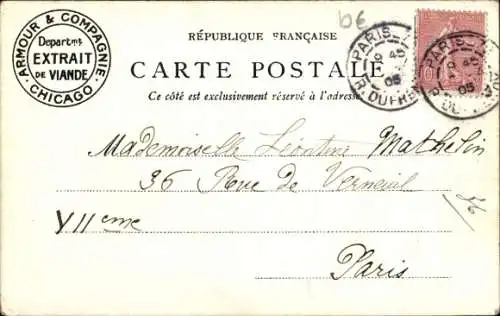 ARMOUR & COMPAGNIE
CHICAGO
Departmt
EXTRAIT
DE VIANDE
6€
RÉPUBLIQUE FRANÇAISE
CARTE POSTALE
Ce côté est exclusivement réservé à l'adresse
PARIS
05
R. DUFRE
PARIS
05
Mademoiselle Léontine Mathelin
36 Rue de Verneuil
VIIeme
Paris